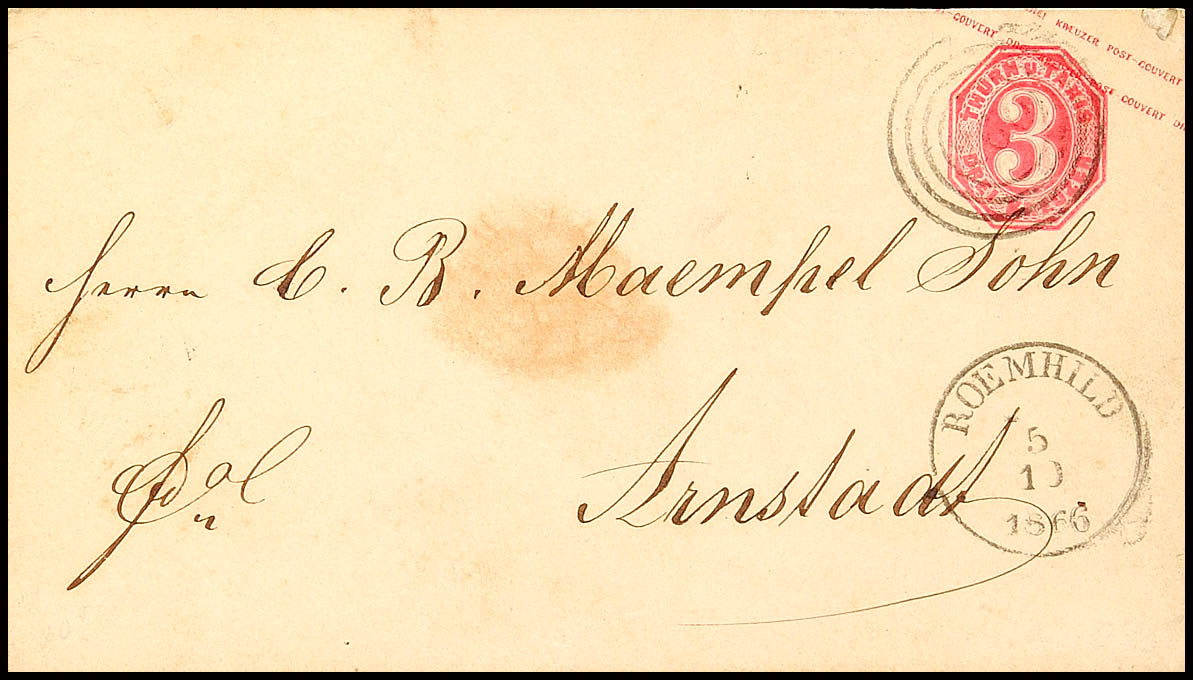 POST-COUVERT DREI KREUZER POST-COUVERT
POST-COUVERT DREI KREUZER POST COUVERT DREI
THURN U. TAXIS
3
DREI KREUZER
Herrn C. B. Maempel Sohn
Arnstadt
ROEMHILD
5
10
1866